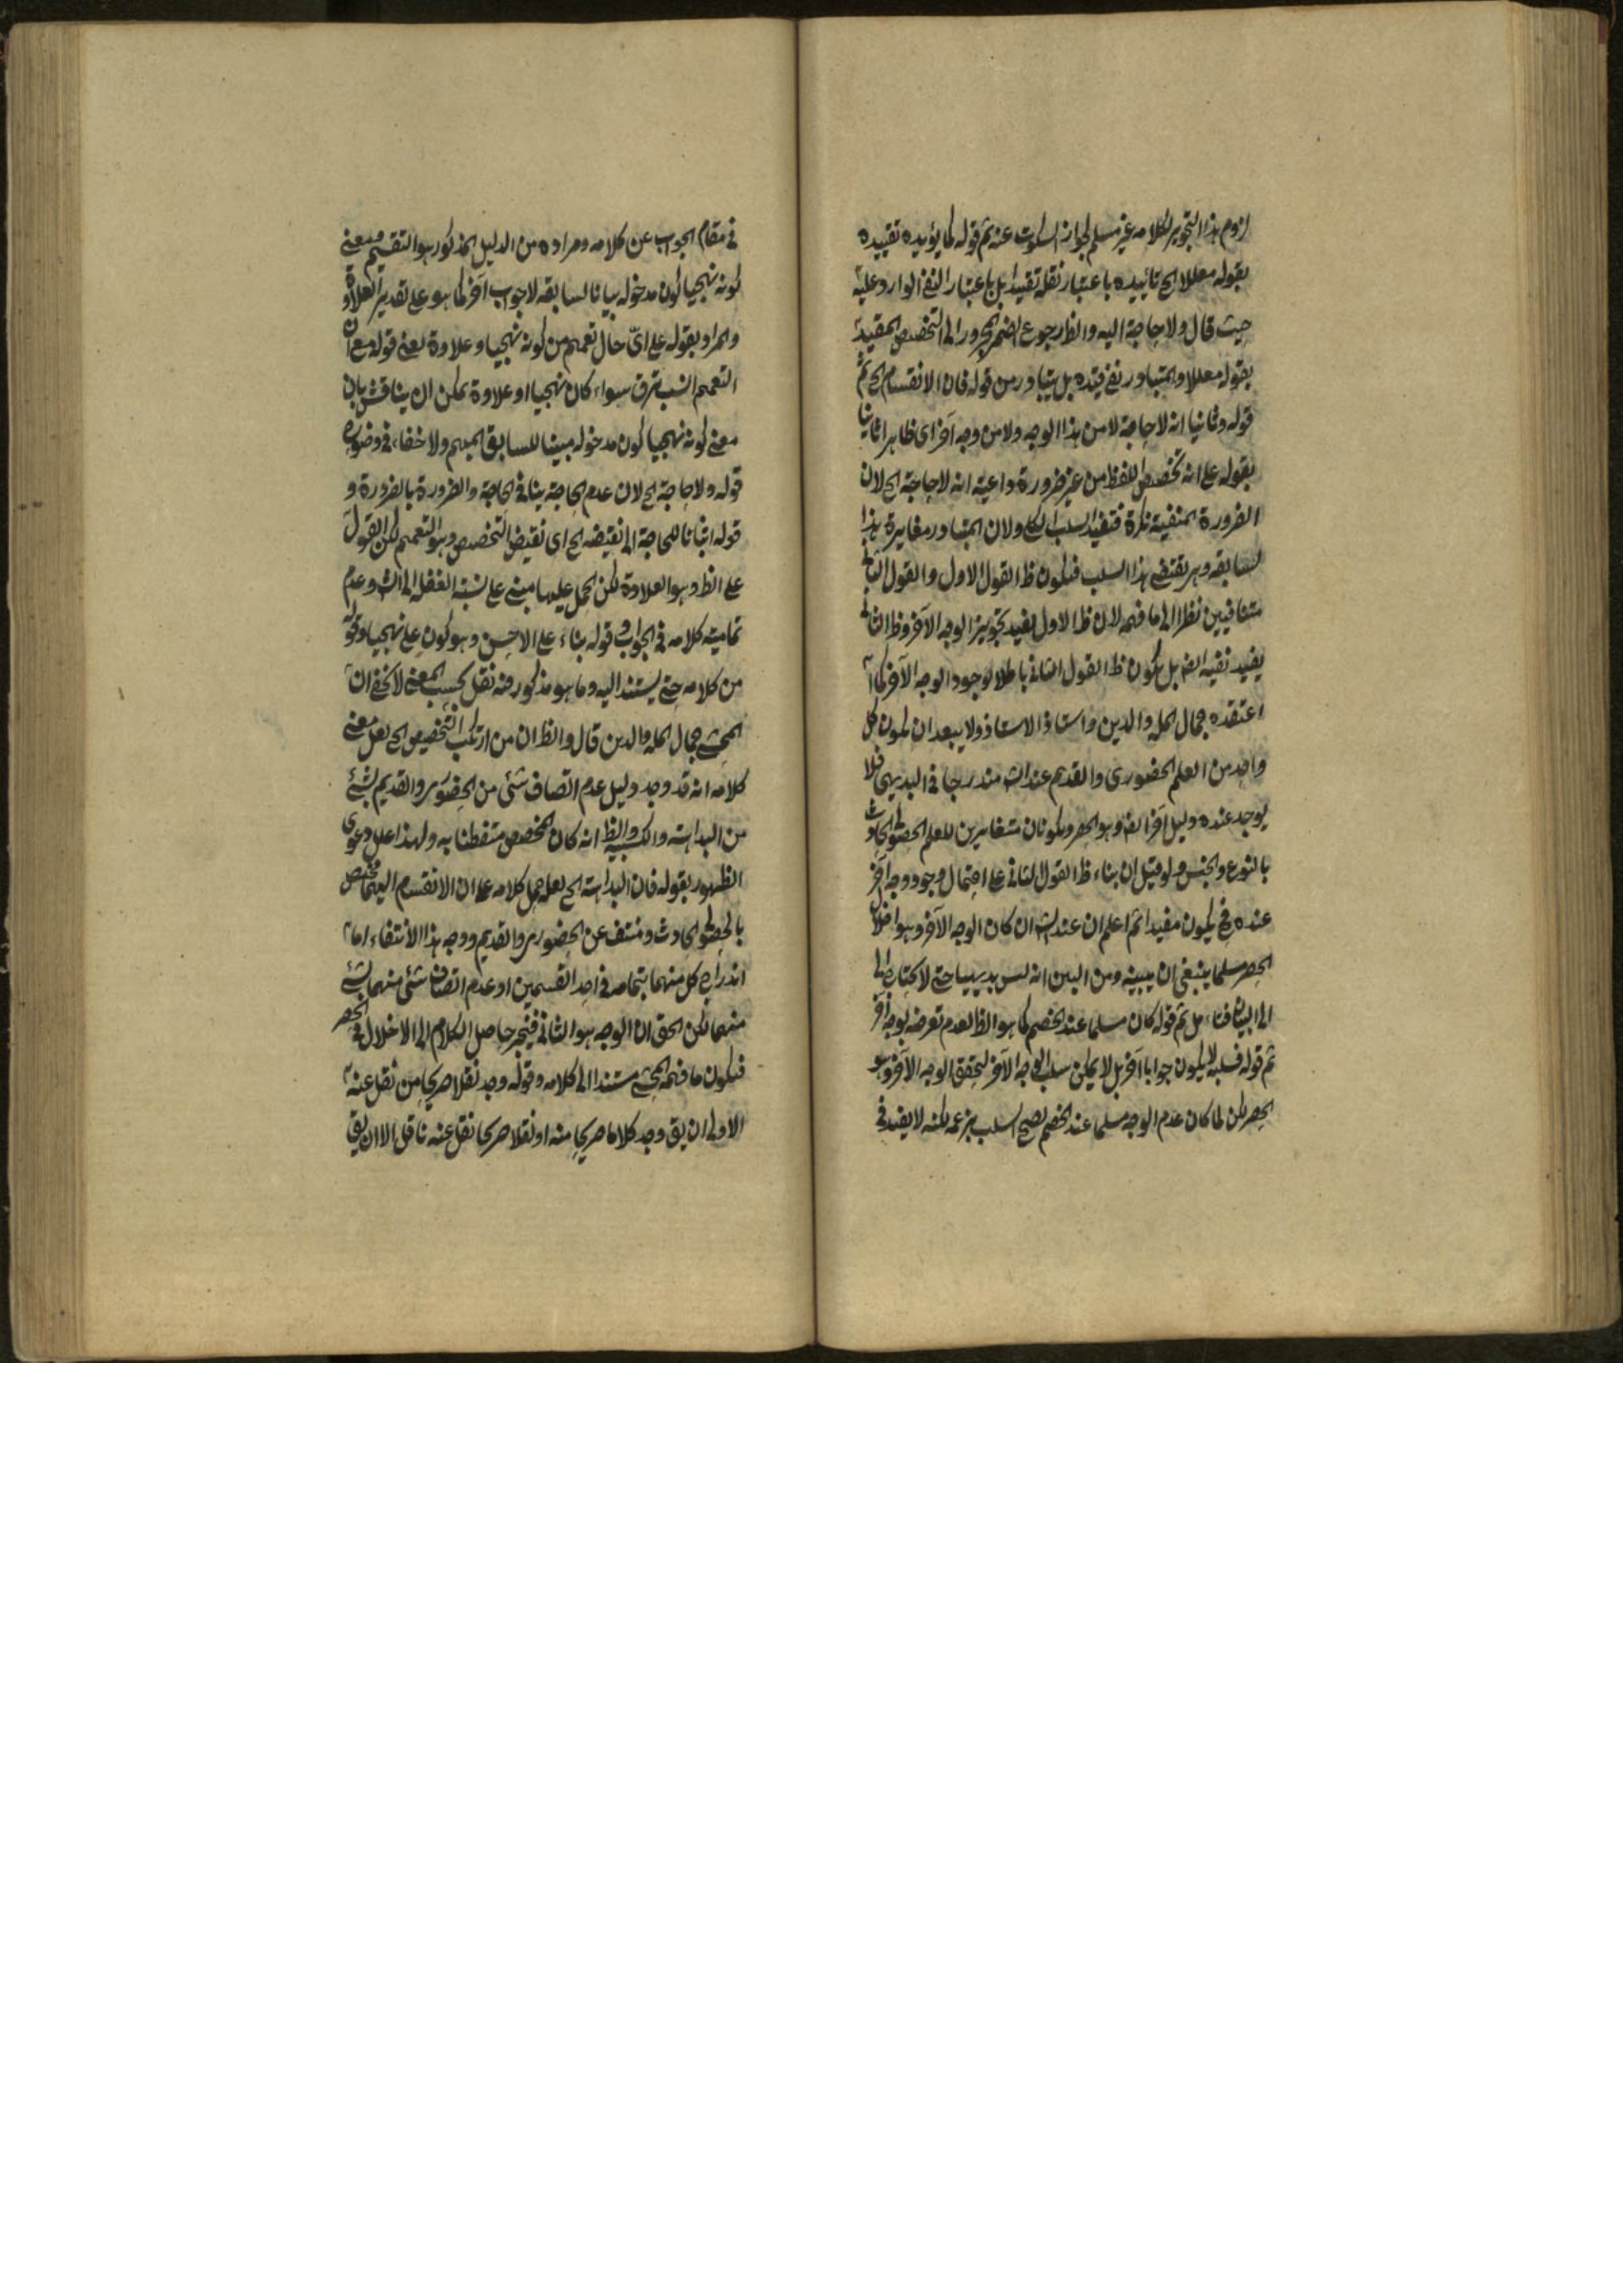 لزوم هذا التجويز لكلامه غير مسلم لجواز السكوت عنه ثم قوله كما يؤيده تقييده
بقوله معللا الخ تائيده باعتبار نقله تقييدا بل باعتبار النفي الوارد عليه
حيث قال ولا حاجة اليه والظ رجوع الضمير المجرور الى التخصيص المقيد
بقوله معللا والمتبادر نفي قيده بل يتبادر من قوله فان الانقسام الخ ثم
قوله وثانيا انه لا حاجة لا من هذا الوجه ولا من وجه آخر اى ظاهرا ثانيا
بقوله على انه تخصيص اللفظ من غير ضرورة داعية انه لا حاجة الخ لان
الضرورة المنفية نكرة فتفيد السلب الكلي ولان المتبادر مغايرة هذا
لسابقه وهو يقتضي هذا السلب فيكون ظ القول الاول والقول الثاني
متنافيين نظرا الى ما فهمه لان ظ الاول يفيد تجويز الوجه الآخر وظ الثاني
يفيد نفيه ايضا بل يكون ظ القول الثاني باطلا لوجود الوجه الآخر كما
اعتقده جمال المله والدين واستاذ الاستاذ ولا يبعد ان يكون كل
واحد من العلم الحضورى والقديم عند الش مندرجا فى البديهي فلا
يوجد عنده دليل آخر ايضا وهو الحصر ويكونان متغايرين للعلم الحصولي الحادث
بالنوع والجنس ولو قيل ان بناء ظ القول الثاني على احتمال وجود وجه آخر
عنده فح يكون مفيدا ثم اعلم ان عند الش ان كان الوجه الآخر وهو اخلال
الحصر مسلما ينبغي ان يبينه ومن البين انه ليس بديهيا حتى لا يحتاج الى
الى البيان فتامل ثم قوله كان مسلما عند الخصم كما هو الظ لعدم تعرضه لوجه آخر
ثم قوله فسلبه لا يكون جوابا آخر بل لا يمكن سلب الوجه الآخر لتحقق الوجه الآخر وهو
الحصر لكن لما كان عدم الوجه مسلما عند الخصم يصح السلب بزعمه لكنه لا يفيد فى
فى مقام الجواب عن كلامه ومراده من الدليل المذكور هو التقسيم فمعنى
كونه نهجيا كون مدخوله بيانا لسابقه لا جواب آخر كما هو على تقدير العلاوة
والمراد بقوله على اىّ حال تعميم من كونه نهجيا وعلاوة يعنى قوله مع ان
التعميم انسب ترق سواء كان نهجيا او علاوة يمكن ان يناقش بان
معنى كونه نهجيا كون مدخوله مبينا للسابق المبهم ولا خفاء فى وضوحه
قوله ولا حاجة الخ لان عدم الحاجة ينافى الحاجة والضرورة بالضرورة و
قوله اثباتا للحاجة الى نقيضه الخ اى نقيض التخصيص وهو التعميم لكن القول
على الظ وهو العلاوة لكن الحمل عليها مبنى على نسبة الغفلة الى الش وعدم
تمامية كلامه فى الجواب وقوله بناء على الاحسن وهو كون على نهجيا وقوله
من كلامه حتى يستند اليه وما هو مذكور فنه نقل بحسب المعنى لا يخفى ان
المحشي جمال المله والدين قال والظ ان من ارتكب التخصيص الخ لعل معنى
كلامه انه قد وجد دليل عدم اتصاف شئ من الحضورى والقديم بشئ
من البداهة والكسبية والظ انه كان المخصص متفطنا به ولهذا علل دعوى
الظهور بقوله فان البداهة الخ لعله حمل كلامه على ان الانقسام اليهما مختص
بالحصولي الحادث ومنتف عن الحضورى والقديم ووجه هذا الانتفاء اما
اندراج كل منهما بتمامه فى احد القسمين او عدم اتصاف شئ منهما بشئ
منهما لكن الحق ان الوجه هو الثاني فينجر حاصل الكلام الى الاخلال فى الحصر
فيكون ما فهمه المحشي مستندا الى كلامه وقوله وجد نقلا صريحا من نقل عنه
الاولى ان يق وجد كلاما صريحا منه او نقلا صريحا نقل عنه ناقل الا ان يق